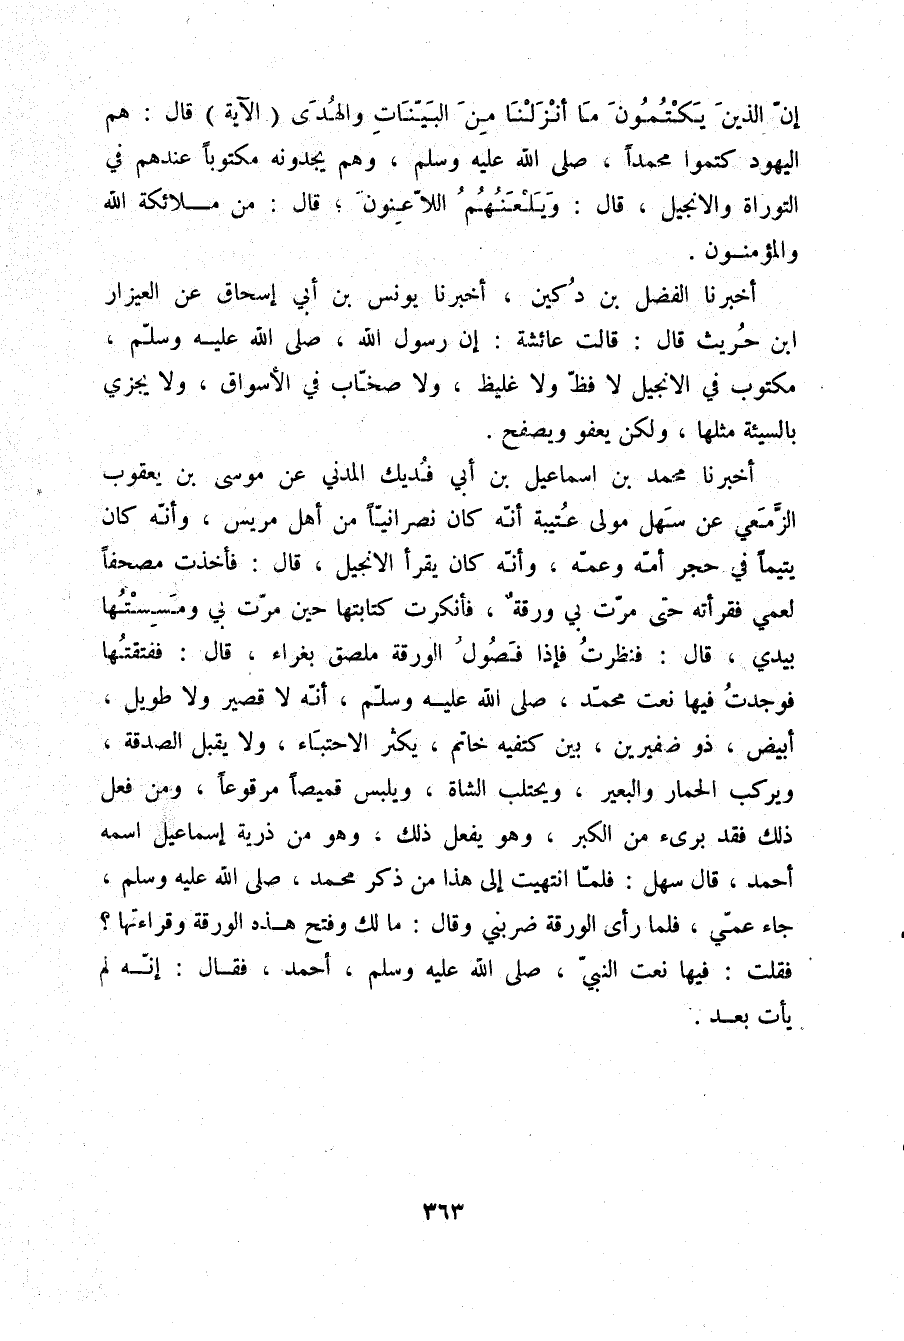 إنّ الذينَ يَكْتُمُونَ مَا أنْزَلْنَا مِنَ البَيّنَاتِ والهُدَى ( الآية ) قال : هم
اليهود كتموا محمداً ، صلى الله عليه وسلم ، وهم يجدونه مكتوباً عندهم في
التوراة والانجيل ، قال : وَيَلْعَنُهُمُ اللاّعِنونَ ؛ قال : من مـــلائكة الله
والمؤمنــون .
أخبرنا الفضل بن دُكين ، أخبرنا يونس بن أبي إسحاق عن العيزار
ابن حُريث قال : قالت عائشة : إن رسول الله ، صلى الله عليــه وسلّم ،
مكتوب في الانجيل لا فظّ ولا غليظ ، ولا صخّاب في الأسواق ، ولا يجزي
بالسيئة مثلها ، ولكن يعفو ويصفح .
أخبرنا محمد بن اسماعيل بن أبي فُديك المدني عن موسى بن يعقوب
الزَّمَعي عن سَهل مولى عُتيبة أنّه كان نصرانيّاً من أهل مريس ، وأنّه كان
يتيماً في حجر أمّه وعمّه ، وأنّه كان يقرأ الانجيل ، قال : فأخذت مصحفاً
لعمي فقرأته حتّى مرّت بي ورقةٌ ، فأنكرت كتابتها حين مرّت بي ومَسِسْتُها
بيدي ، قال : فنظرتُ فإذا فَصُولُ الورقة ملصق بغراء ، قال : ففتقتُها
فوجدتُ فيها نعت محمّد ، صلى الله عليــه وسلّم ، أنّه لا قصير ولا طويل ،
أبيض ، ذو ضفيرين ، بين كتفيه خاتم ، يكثر الاحتبَاء ، ولا يقبل الصدقة ،
ويركب الحمار والبعير ، ويحتلب الشاة ، ويلبس قميصاً مرقوعاً ، ومن فعل
ذلك فقد برىء من الكبر ، وهو يفعل ذلك ، وهو من ذرية إسماعيل اسمه
أحمد ، قال سهل : فلمّا انتهيت إلى هذا من ذكر محمد ، صلى الله عليه وسلم ،
جاء عمّي ، فلما رأى الورقة ضربني وقال : ما لك وفتح هــذه الورقة وقراءتها ؟
فقلت : فيها نعت النبيّ ، صلى الله عليه وسلم ، أحمد ، فقــال : إنّــه لم
يأت بعــد .
٣٦٣